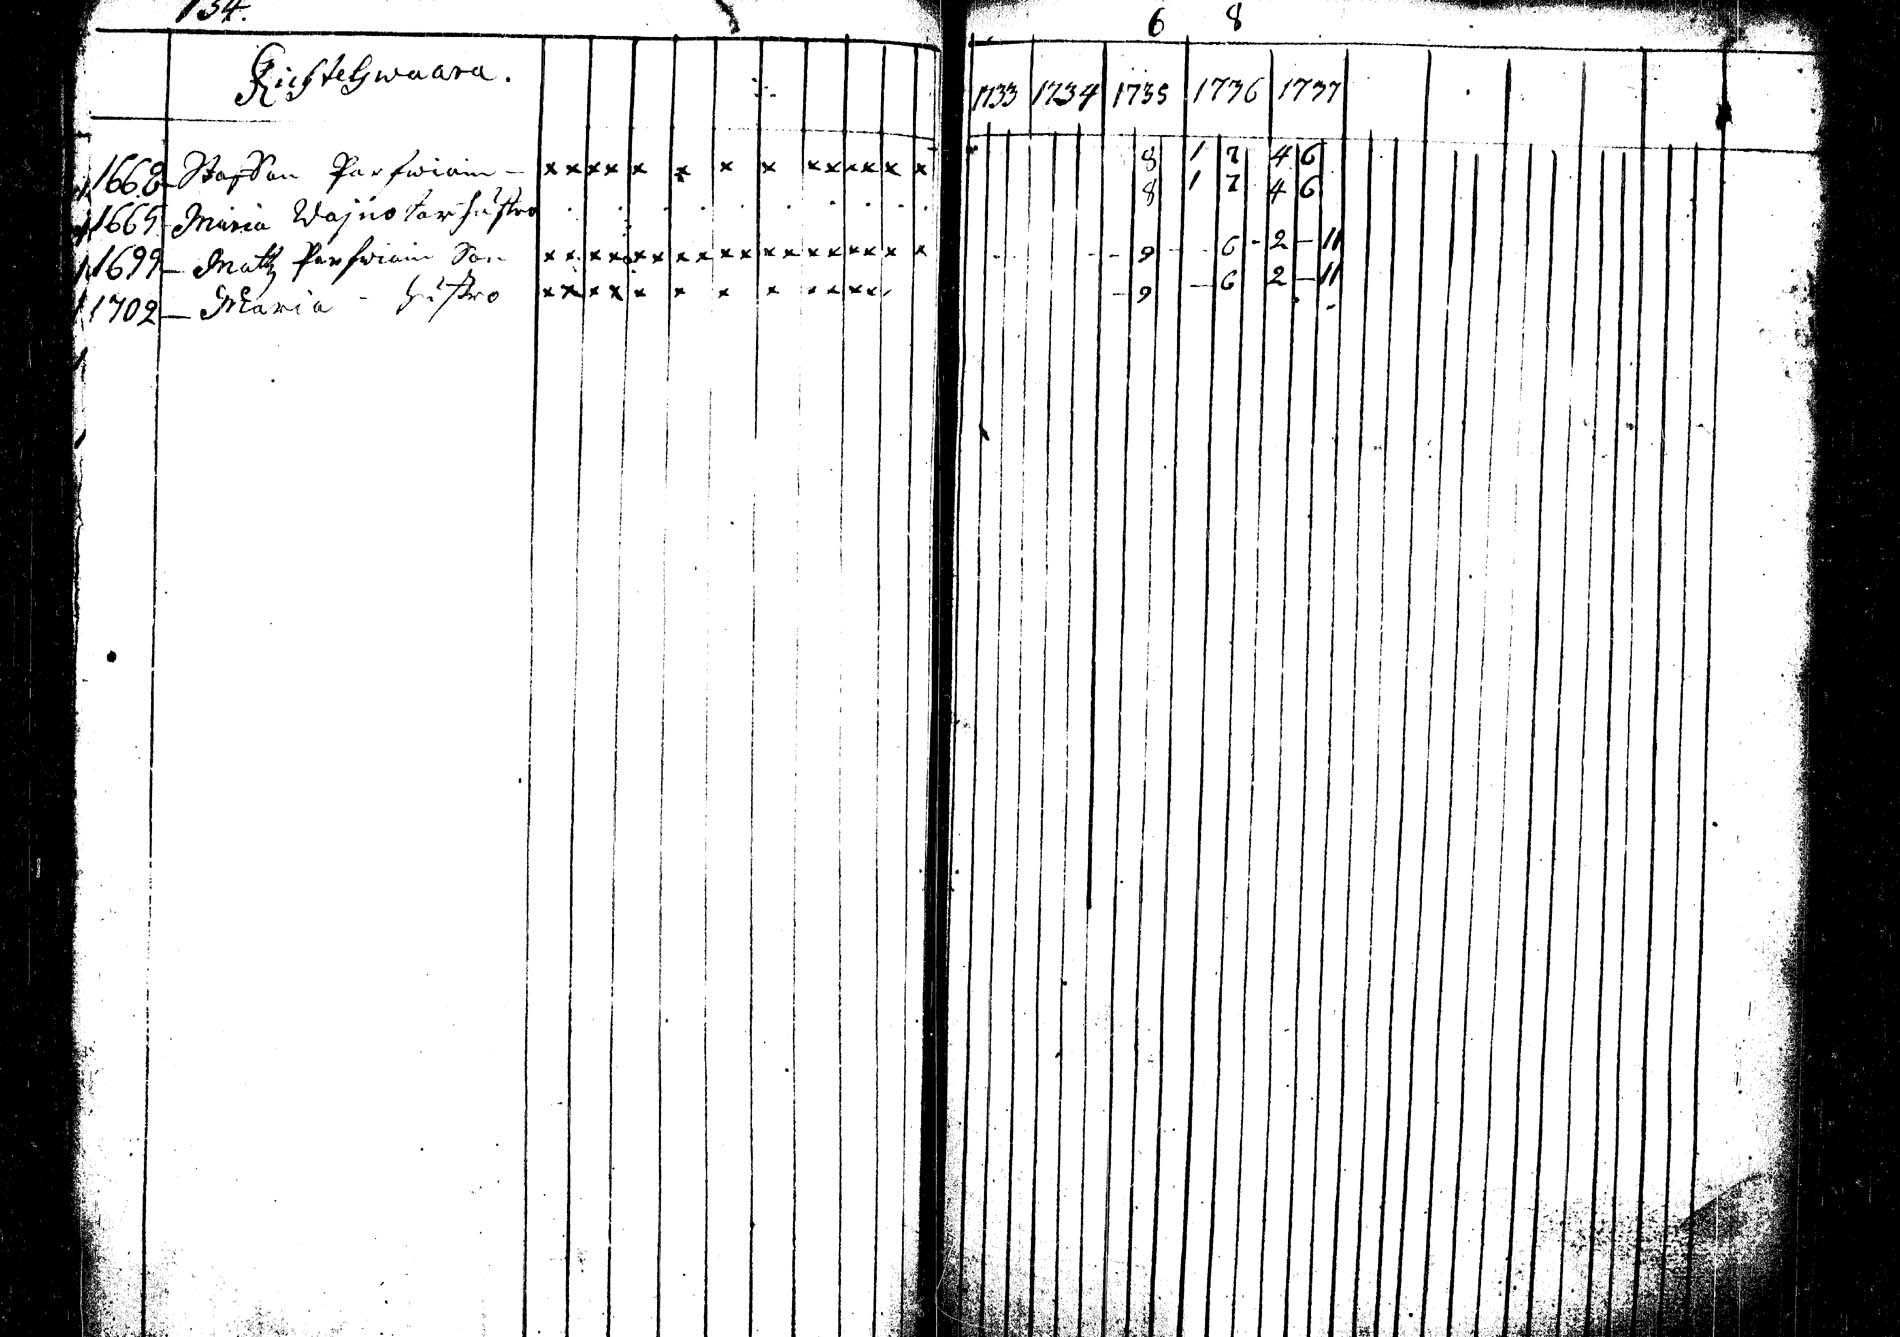 134.
6 8
Kichtelswaara.
1733 1734 1735 1736 1737
1662 Staffan Parfwiain - x x x x x x x x x x x x x x 8 1 7 4 6
1665 Maria Wajnotar hustro 8 1 7 4 6
1699 - Matz Parfwiain Son x x x x x x x x x x x x x x x x x x - - 9 - - 6 - 2 - 11
1702 - Maria - hustro x x x x x x x x x x x x - 9 - 6 2 - 11